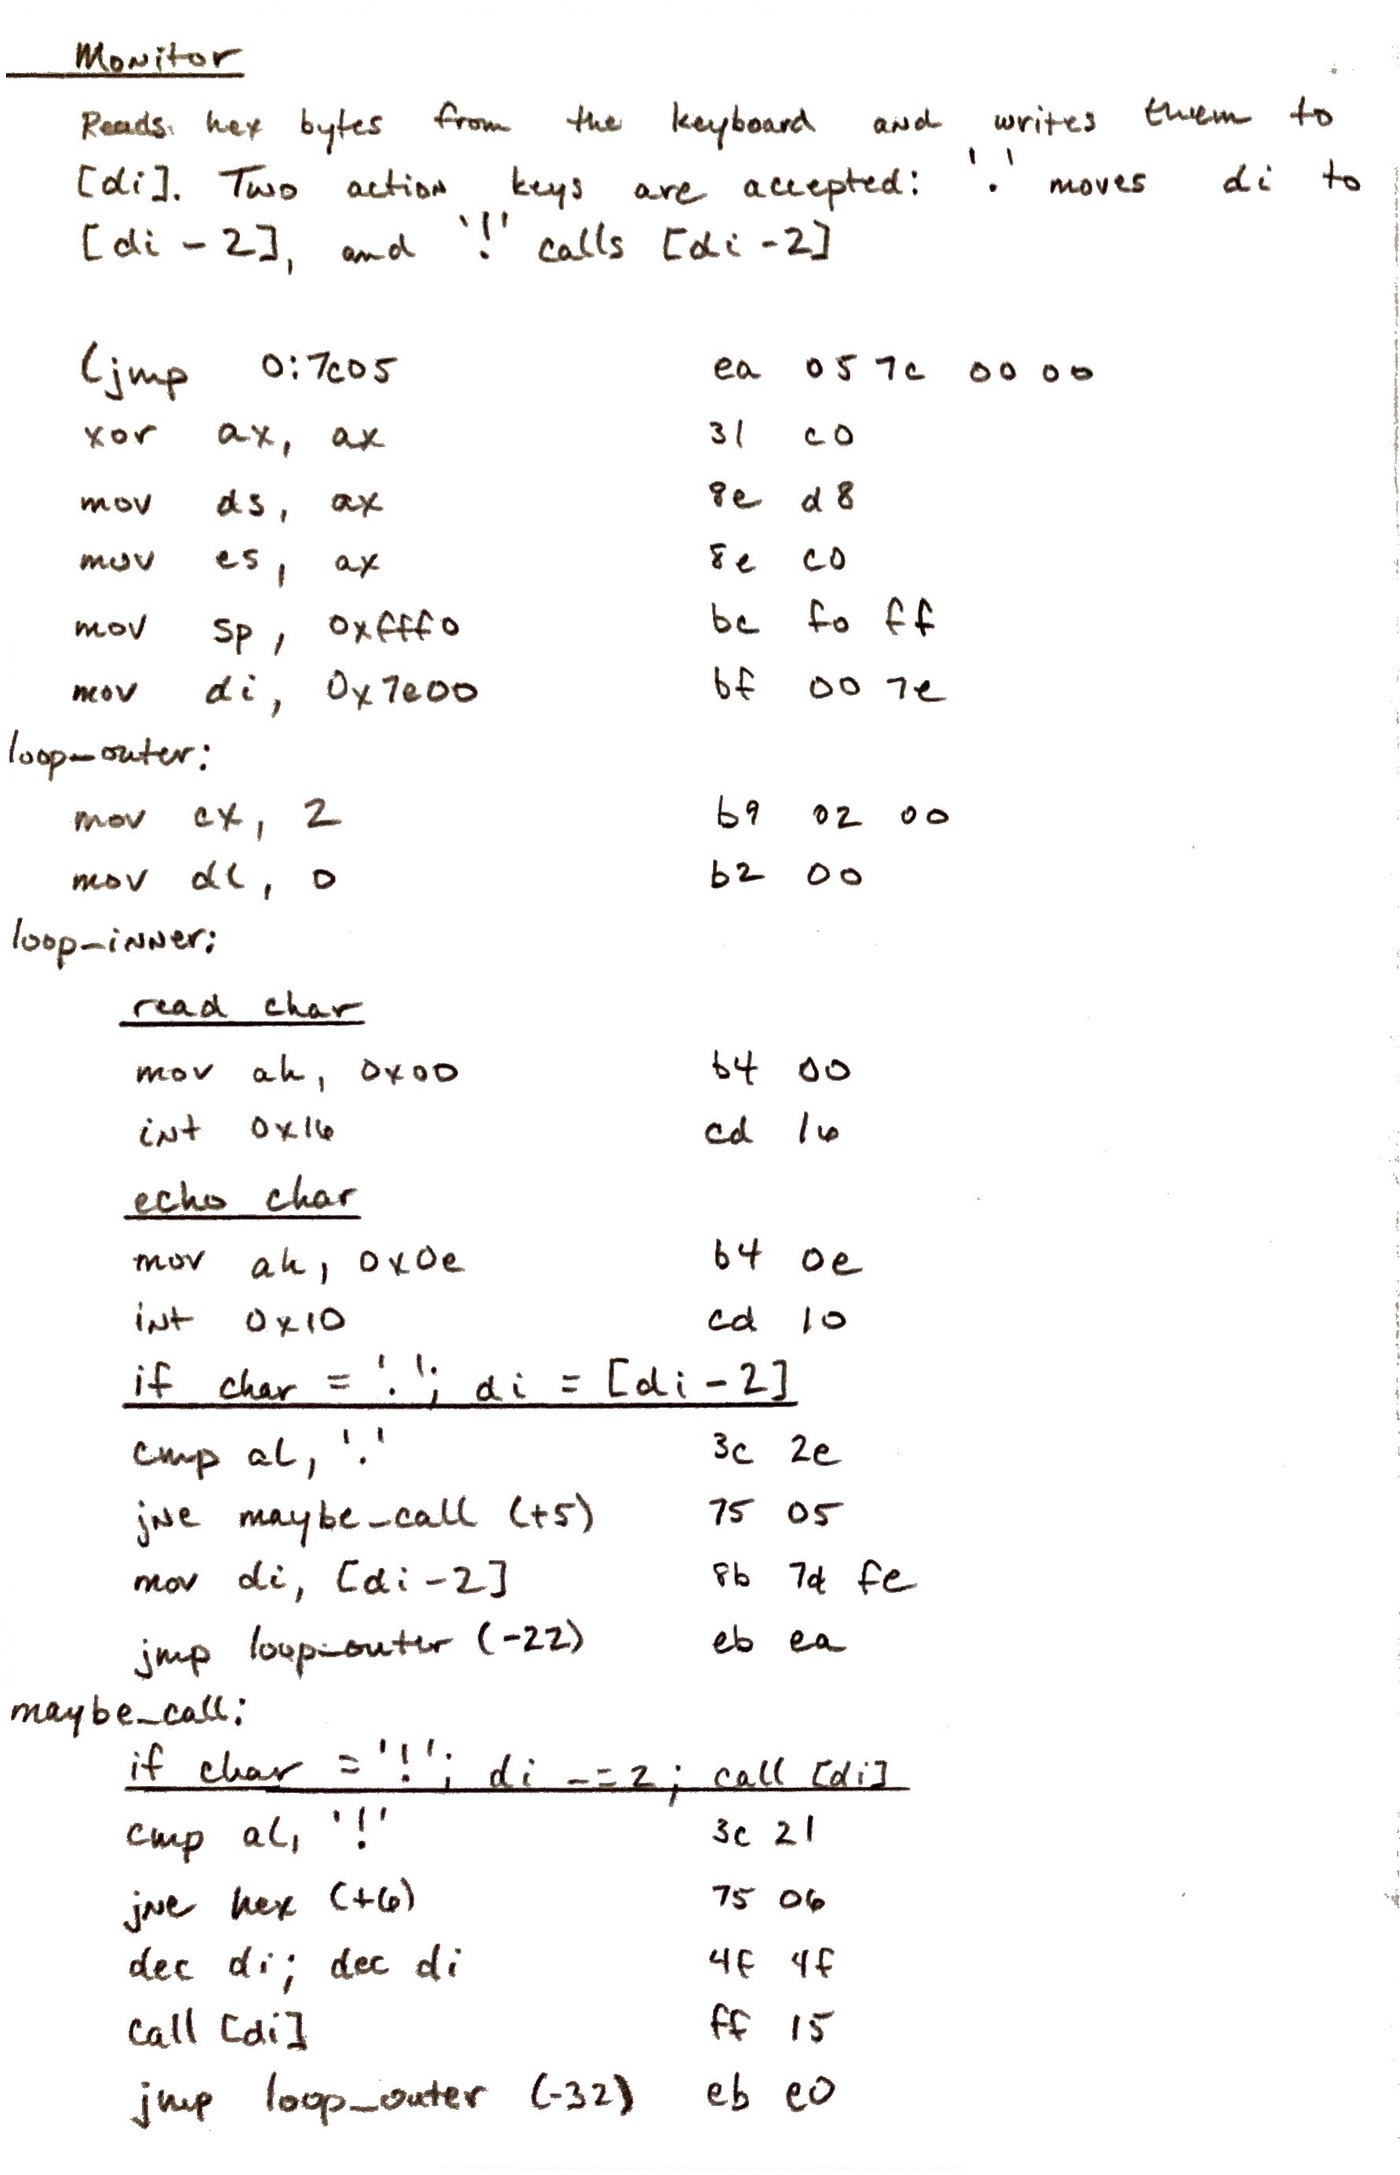 Monitor
Reads hex bytes from the keyboard and writes them to
[di]. Two action keys are accepted: '.' moves di to
[di - 2], and '!' calls [di -2]
ljmp 0:7c05 ea 05 7c 00 00
xor ax, ax 31 c0
mov ds, ax 8e d8
mov es, ax 8e c0
mov sp, 0xfff0 bc f0 ff
mov di, 0x7e00 bf 00 7e
loop-outer:
mov cx, 2 b9 02 00
mov dl, 0 b2 00
loop-inner:
read char
mov ah, 0x00 b4 00
int 0x16 cd 16
echo char
mov ah, 0x0e b4 0e
int 0x10 cd 10
if char = '.'; di = [di-2]
cmp al, '.' 3c 2e
jne maybe_call (+5) 75 05
mov di, [di-2] 8b 7d fe
jmp loop-outer (-22) eb ea
maybe_call:
if char = '!'; di -= 2; call [di]
cmp al, '!' 3c 21
jne hex (+6) 75 06
dec di; dec di 4f 4f
call [di] ff 15
jmp loop_outer (-32) eb e0